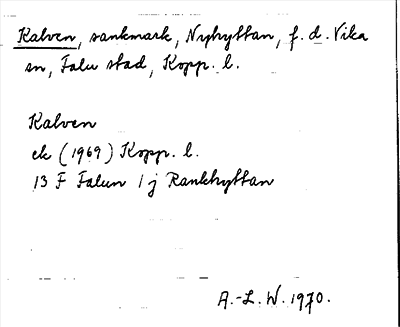 Kalven, sankmark, Nyhyttan, f. d. Vika
sn, Falu stad, Kopp. l.
Kalven
ek (1969) Kopp. l.
13 F Falun 1 j Rankhyttan
A.-L. W. 1970.